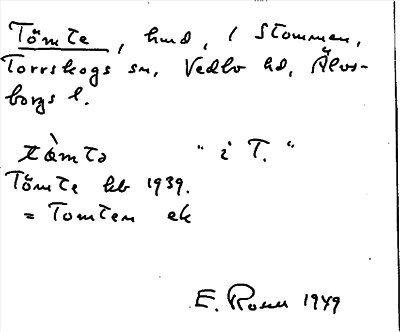 Tömte, hmd, i Stommen,
Torrskogs sn, Vedbo hd, Älvs-
borgs l.
tömtə " i T. "
Tömte kb 1939.
= Tomten ek
E. Rosell 1949